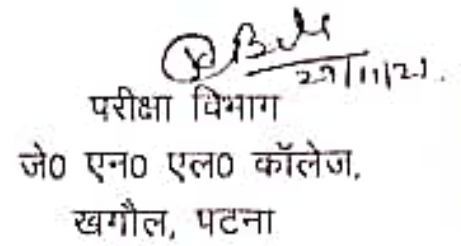 परीक्षा विभाग
जे0 एन0 एल0 कॉलेज,
खगौल, पटना